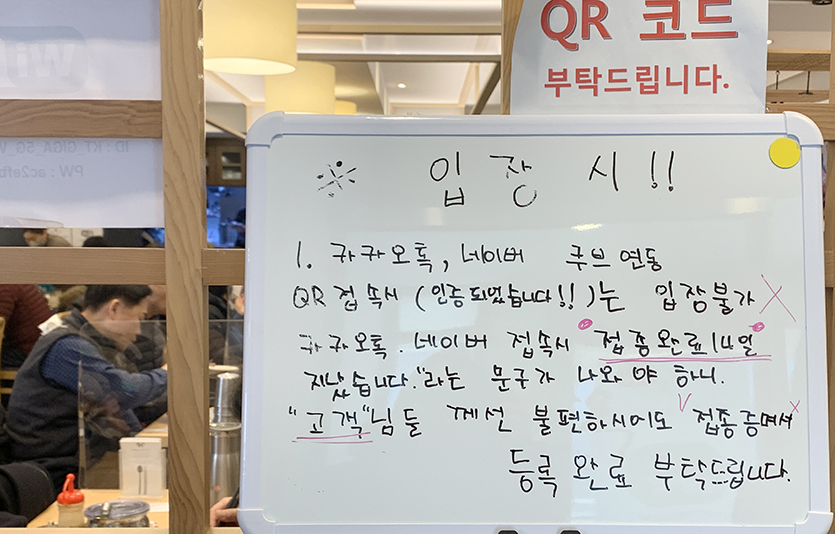 QR 코드
부탁드립니다.
Wi
ID : KT_GIGA_5G_W
PW : ac2efb
※ 입장 시!!
1. 카카오톡, 네이버 쿠브 연동
QR 접속시 (인증되었습니다!!)는 입장불가 X
카카오톡. 네이버 접속시 "접종완료 14일
지났습니다."라는 문구가 나와야 하니.
"고객"님들 께선 불편하시어도 접종증명서
등록 완료 부탁드립니다.